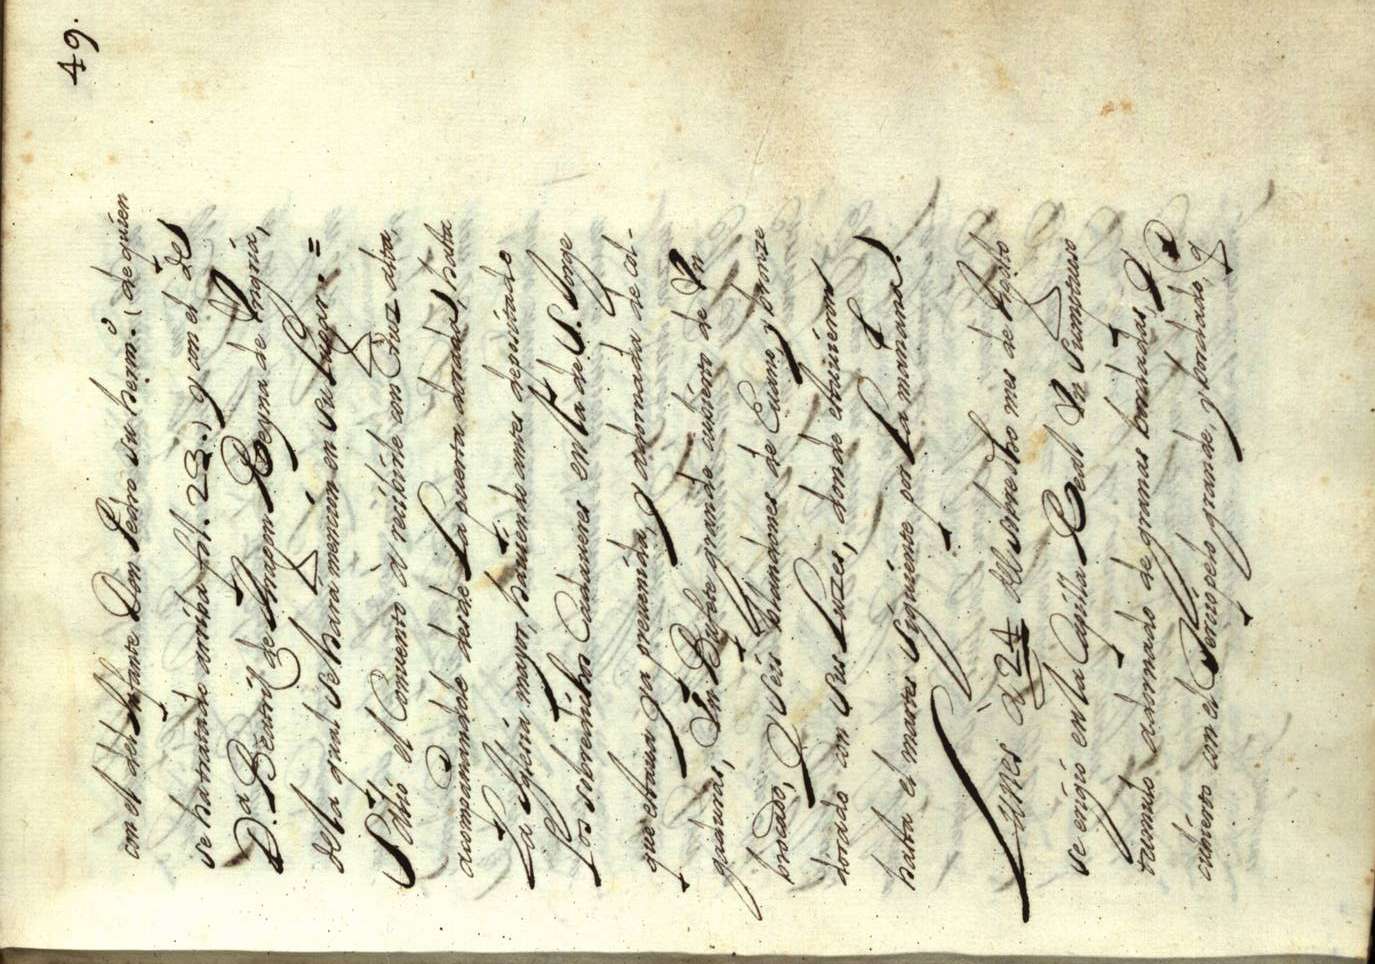 49.
con el del Infante Don Pedro su herm.º (de quien
se ha tratado arriba fol. 23.) y con el de
D.ª Beatriz de Aragon Reyna de Ungria,
de la qual se hara mencion en su lugar. =
Salió el Convento á recibirle con Cruz alta,
acompañandole desde la puerta dorada, hasta
la Iglesia mayor, haviendo antes depositado
los sobredichos Cadaveres en la de S. Jorge
que estava ya prevenida, y adornada de col-
gaduras, Un Bufete grande cubierto de Un
brocado, y seis blandones de Evano, y bronze
dorado con sus Luzes, donde estuvieron
hasta el martes siguiente por la mañana.
Lunes á 24 del sobredicho mes de Agosto
se erigió en la Capilla Real Un Sumptuoso
tumulo adornado de gramas bordadas, y
cubierto con el Terciopelo grande, y bordado, q